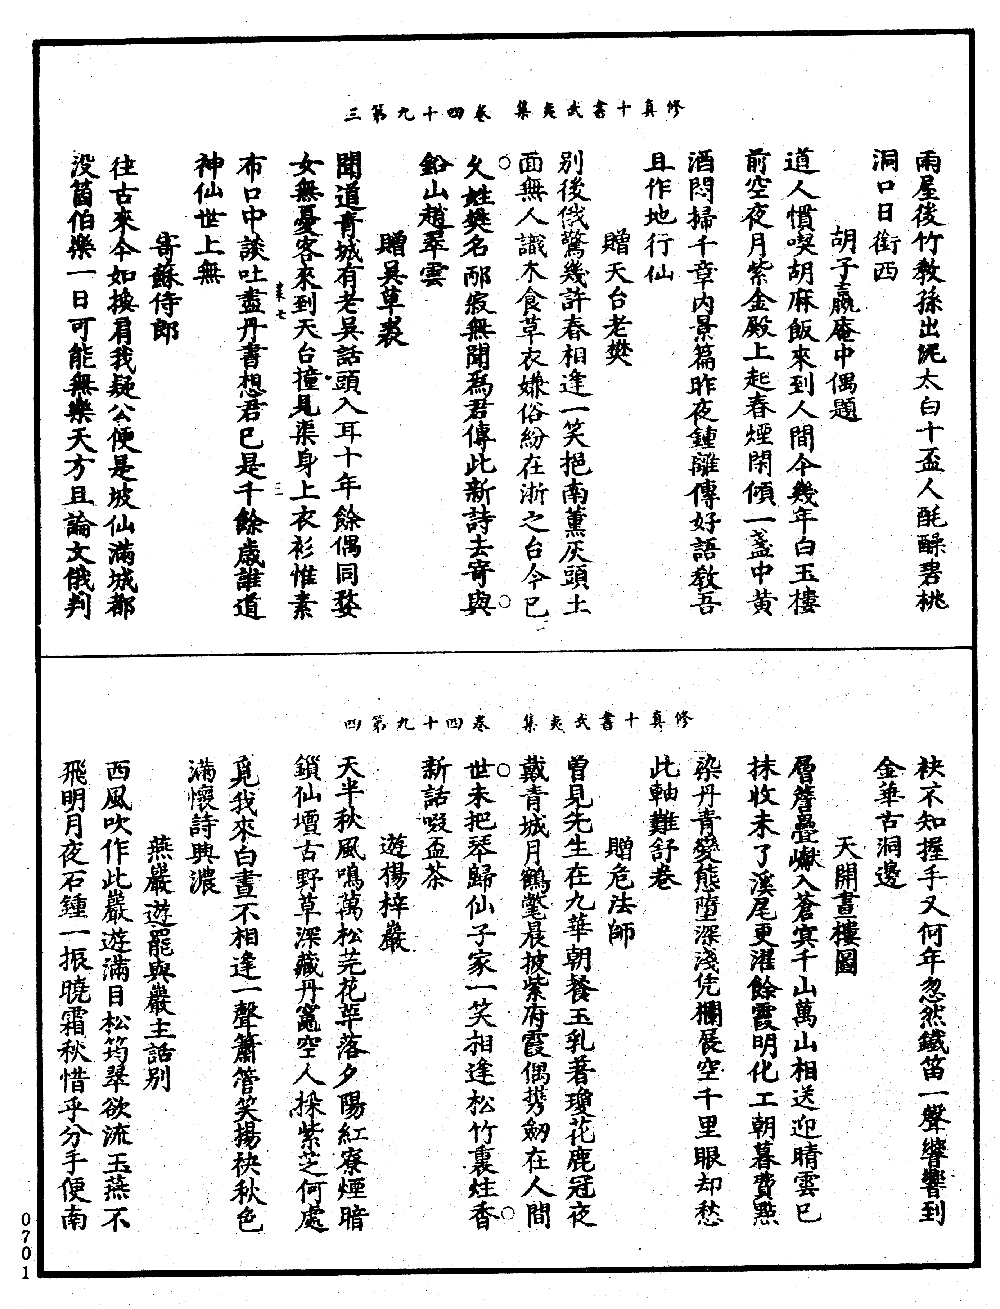 修真十書武夷集 卷四十九第三
雨屋後竹教孫出泥太白十盃人酕醄碧桃
洞口日銜西
胡子嬴庵中偶題
道人慣喫胡麻飯來到人間今幾年白玉樓
前空夜月紫金殿上起春煙閑傾一盞中黃
酒悶掃千章內景篇昨夜鍾離傳好語教吾
且作地行仙
贈天台老樊
別後俄驚幾許春相逢一笑挹南薰灰頭土
面無人識木食草衣嫌俗紛在浙之台今已
久姓樊名邴寂無聞為君傳此新詩去寄與
鉛山趙翠雲
贈吳草裘
聞道青城有老吳話頭入耳十年餘偶同婺
女無憂客來到天台撞見渠身上衣衫惟素
布口中談吐盡丹書想君已是千餘歲誰道
神仙世上無
寄蘇侍郎
往古來今如換肩我疑公便是坡仙滿城都
沒箇伯樂一日可能無樂天方且論文俄判
修真十書武夷集 卷四十九第四
袂不知握手又何年忽然鐵笛一聲響響到
金華古洞邊
天開畫樓圖
層簷疊巘入蒼冥千山萬山相送迎晴雲已
抹收未了溪尾更濯餘霞明化工朝暮費點
染丹青變態墮深淺凭欄展空千里眼却愁
此軸難舒卷
贈危法師
曾見先生在九華朝餐玉乳著瓊花鹿冠夜
戴青城月鶴氅晨披紫府霞偶携劒在人間
世未把琴歸仙子家一笑相逢松竹裏炷香
新話啜盃茶
遊楊梓巖
天半秋風鳴萬松芫花萃落夕陽紅寮煙暗
鎖仙壇古野草深藏丹竈空人採紫芝何處
覓我來白晝不相逢一聲簫管笑揚袂秋色
滿懷詩興濃
燕巖遊罷與巖主話別
西風吹作此巖遊滿目松筠翠欲流玉燕不
飛明月夜石鍾一振曉霜秋惜乎分手便南
0701